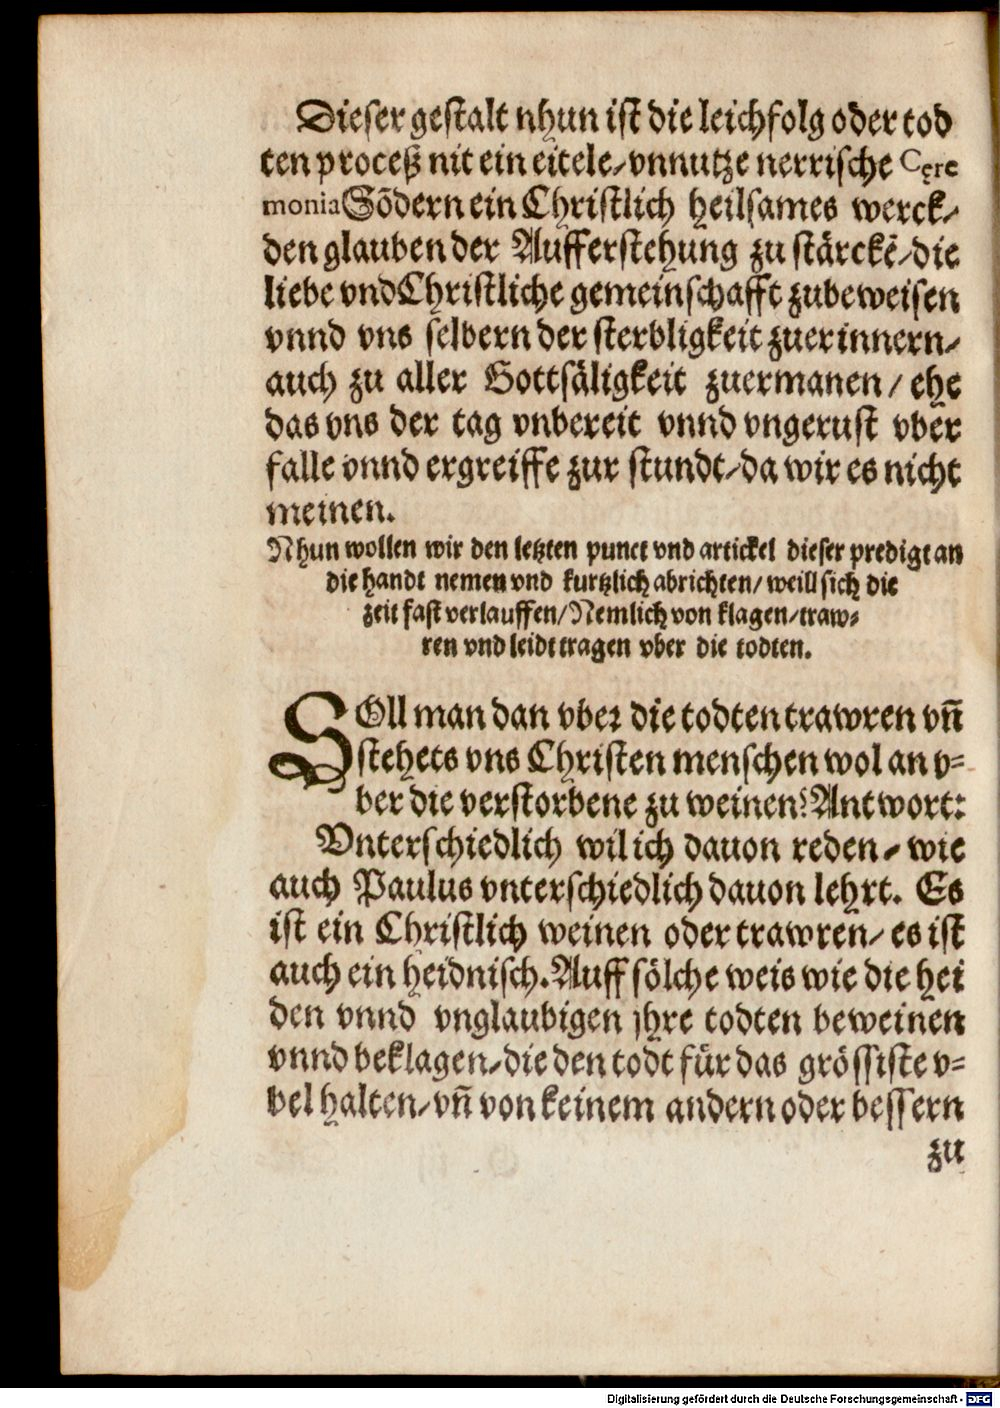 Dieser gestalt nhun ist die leichfolg oder tod
ten proceß nit ein eitele/ vnnutze nerrische Cęre
monia Sõdern ein Christlich heilsames werck/
den glauben der Aufferstehung zu stärckẽ/ die
liebe vnd Christliche gemeinschafft zubeweisen
vnnd vns selbern der sterbligkeit zuerinnern/
auch zu aller Gottsäligkeit zuermanen/ ehe
das vns der tag vnbereit vnnd vngerust vber
falle vnnd ergreiffe zur stundt/ da wir es nicht
meinen.
Nhun wollen wir den letzten punct vnd artickel dieser predigt an
die handt nemen vnd kurtzlich abrichten/ weill sich die
zeit fast verlauffen/ Nemlich von klagen/ traw=
ren vnd leidt tragen vber die todten.
SOll man dan vber die todten trawren vñ
stehets vns Christen menschen wol an v=
ber die verstorbene zu weinen? Antwort:
Vnterschiedlich wil ich dauon reden/ wie
auch Paulus vnterschiedlich dauon lehrt. Es
ist ein Christlich weinen oder trawren/ es ist
auch ein heidnisch. Auff sölche weis wie die hei
den vnnd vnglaubigen jhre todten beweinen
vnnd beklagen/ die den todt für das grössiste v=
bel halten/ vñ von keinem andern oder bessern
zu
Digitalisierung gefördert durch die Deutsche Forschungsgemeinschaft - DFG